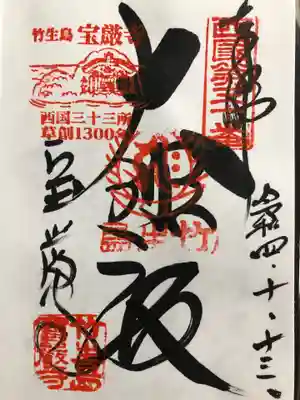 奉拝
西国第三十番
令四・十・十三
大悲殿
竹生島 宝厳寺
西国三十三所
草創1300年
竹生島
宝厳寺